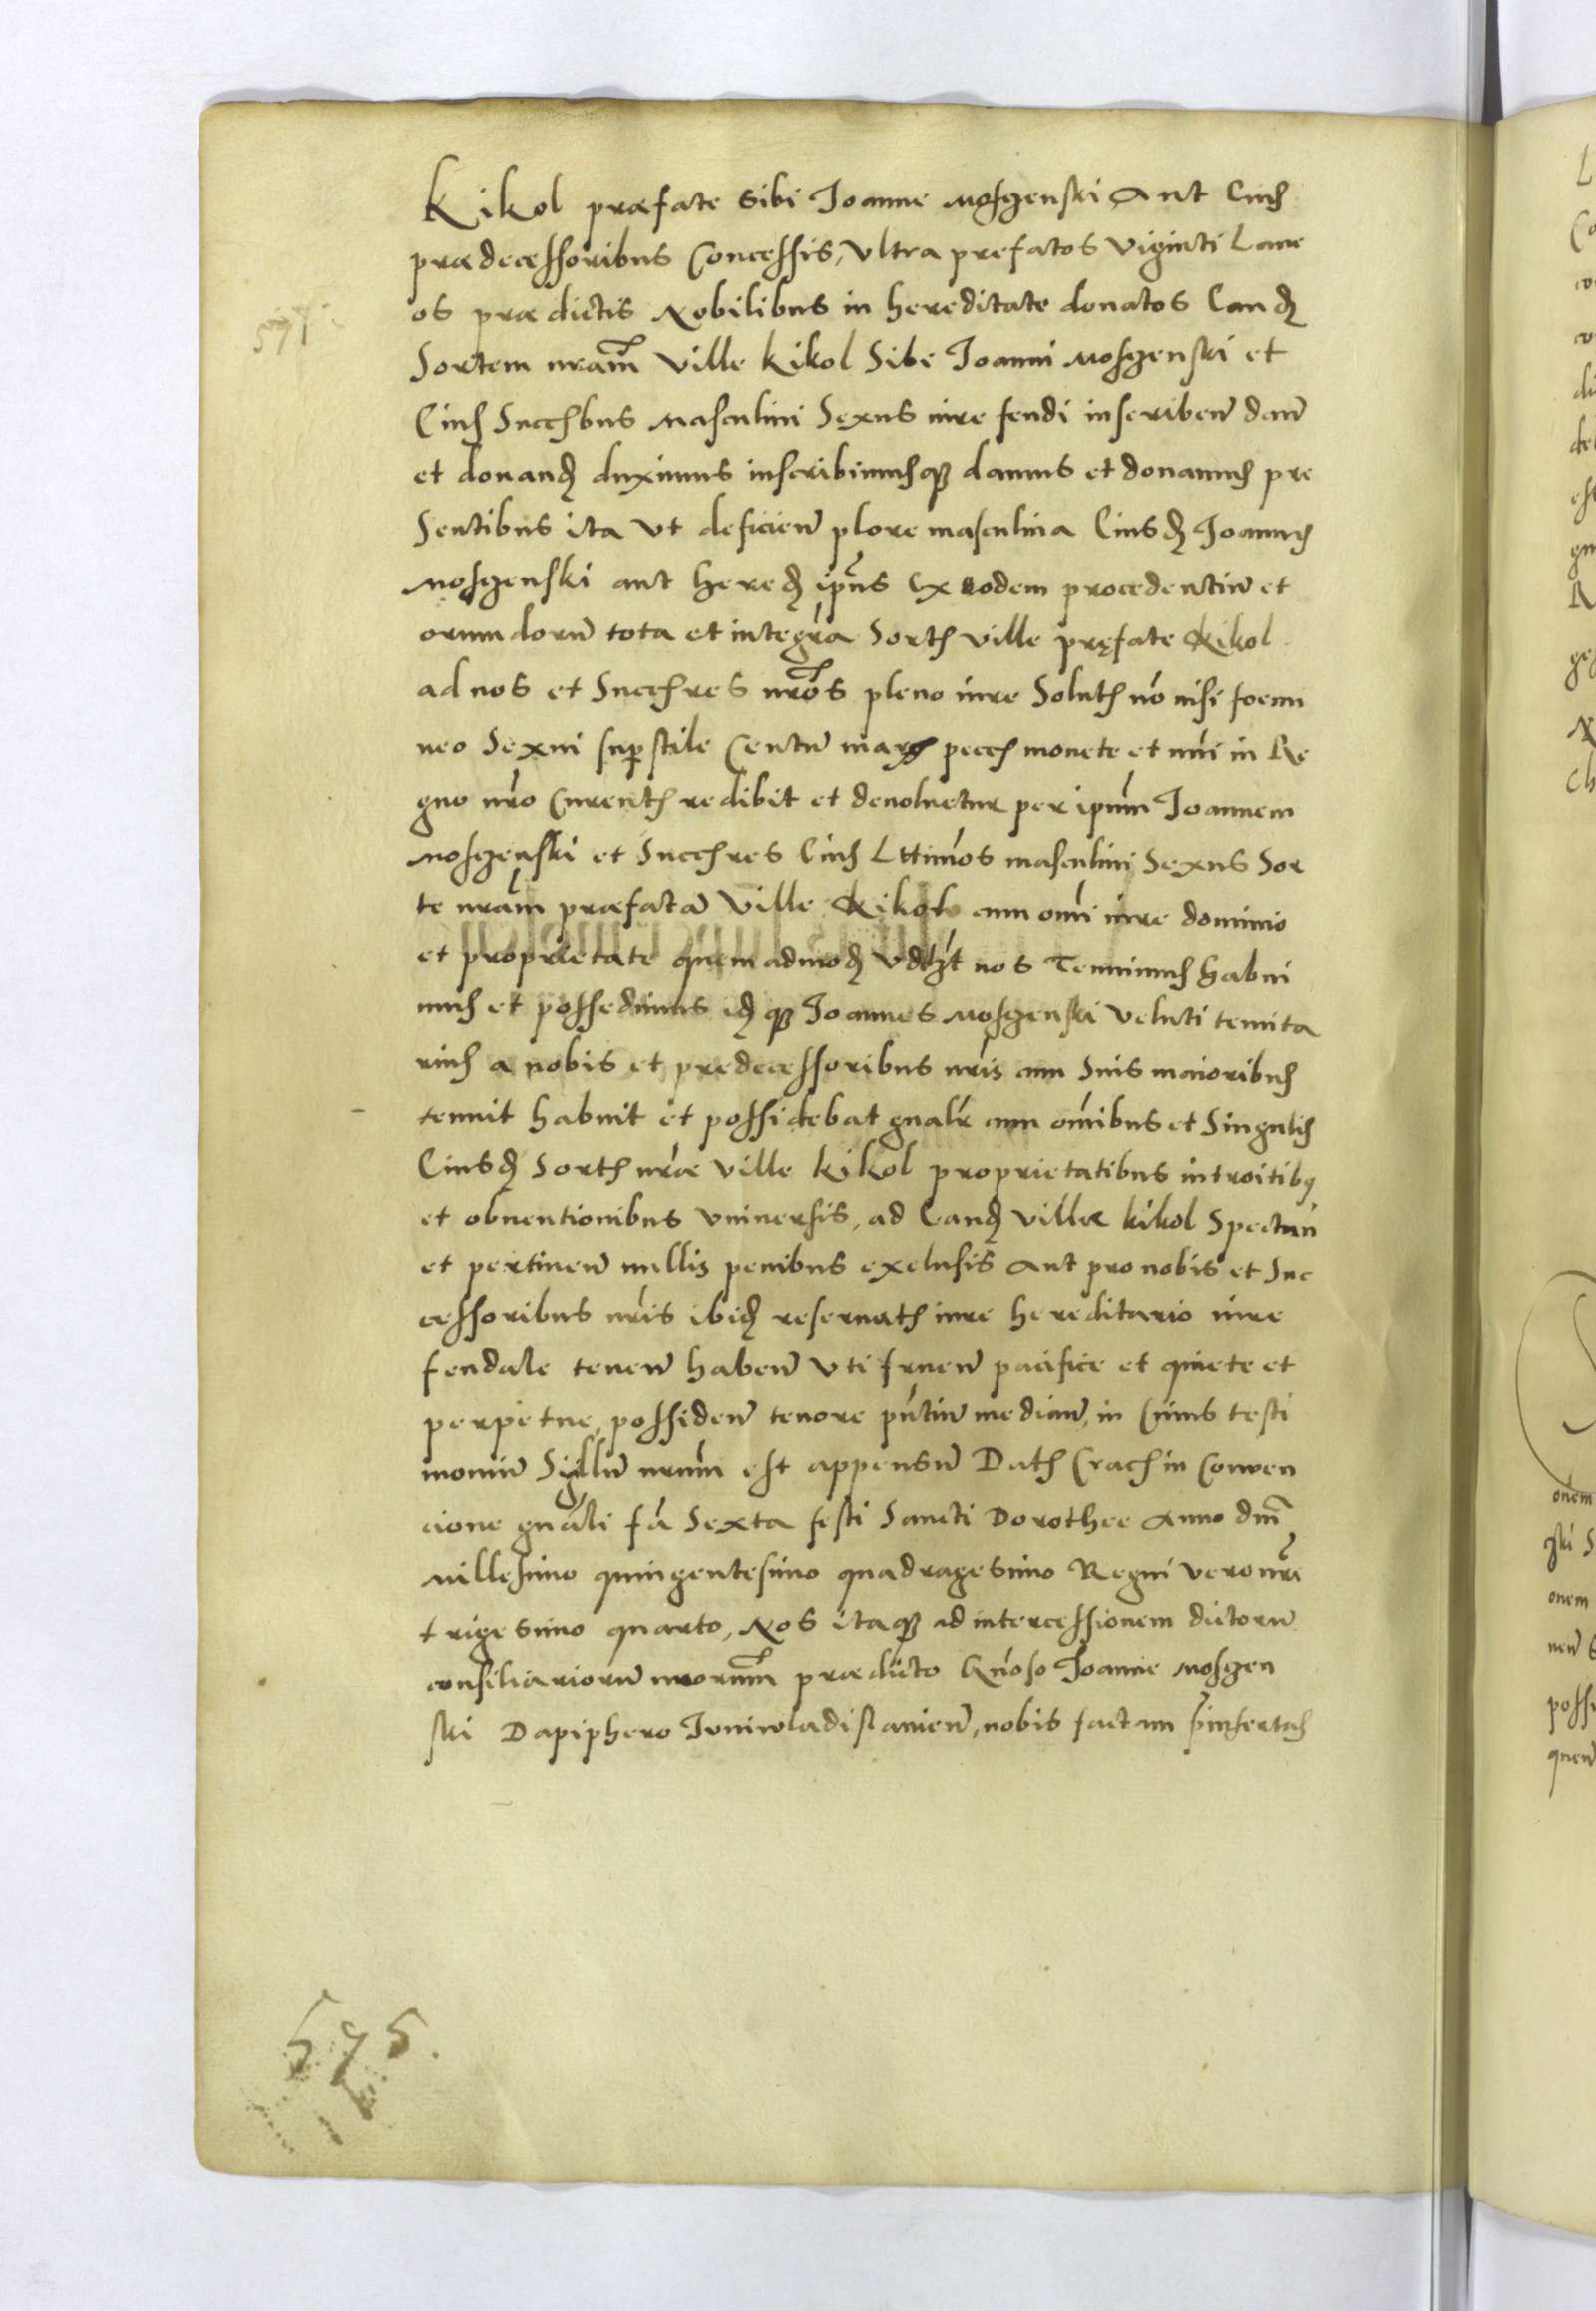 Kikol præfate sibi Joanne Moszenski Aut Eius
prædecessoribus Concessis, Ultra prefatos viginti Lane
os prædictis Nobilibus in hereditate donatos Eandē
Sortem nram̄ Ville Kikol Sibi Joanni Moszenski et
Eius Succes̄bus Masculini Sexus iure feudi inscribeñ dañ
et donandē duximus inscribimusq̄ damus et donamus pre
Sentibus ita ut deficieñ plore masculina Eiusdē Joannis
Moszenski aut heredē ip̄ius Ex eodem procedentiū et
orumdorū tota et integra Sortis ville pręfate Kikol
ad nos et Succes̄res nrōs pleno iure Solutis nō nisi foemi
neo Sexui sup̄stite Centū marc pecces monete et nūi in Re
gno nrō Currentis redibit et devoluetur per ip̄um Joannem
Moszenski et Succes̄res Eius Lttimōs masculini Sexus Sor
te nrām præfatā Ville Kikol cum omi iure dominio
et proprietate quemadmodū vdtzt nos Tenuimus habui
mus et possedimus idē q̄ Joannes Moszenski veluti tenuta
rius a nobis et predecessoribus nris cum Suis maioribus
tenuit habuit et possidebat gnalr cum omibus et Singulis
Eiusdē Sortis nræ Ville Kikol proprietatibus introitibq
et obuentionibus vniuersis, ad Eandē villæ kikol Spectañ
et pertineñ nullis penibus exclusis Aut pro nobis et Suc
cessoribus nris ibidē reseruatis iure hereditario iure
feudale teneñ habeñ Uti frueñ pacifice et quiete et
perpetue, possideñ tenore pn̄tiū mediañ, in Cuius testi
moniū Sigillū nrum est appensū Datis Crac̄ in Conven
cione gnāli fā Sexta festi Sancti Dorothee Anno dnī
Millesimo quingentesimo quadragesimo Regni vero nri
trigesimo quarto, Nos itaq̄ ad intercessionem dictorū
consiliariorū nrorum prædicto Gnōso Joanne Moszen
ski Dapiphero Juniwladislauieñ, nobis factam
595.